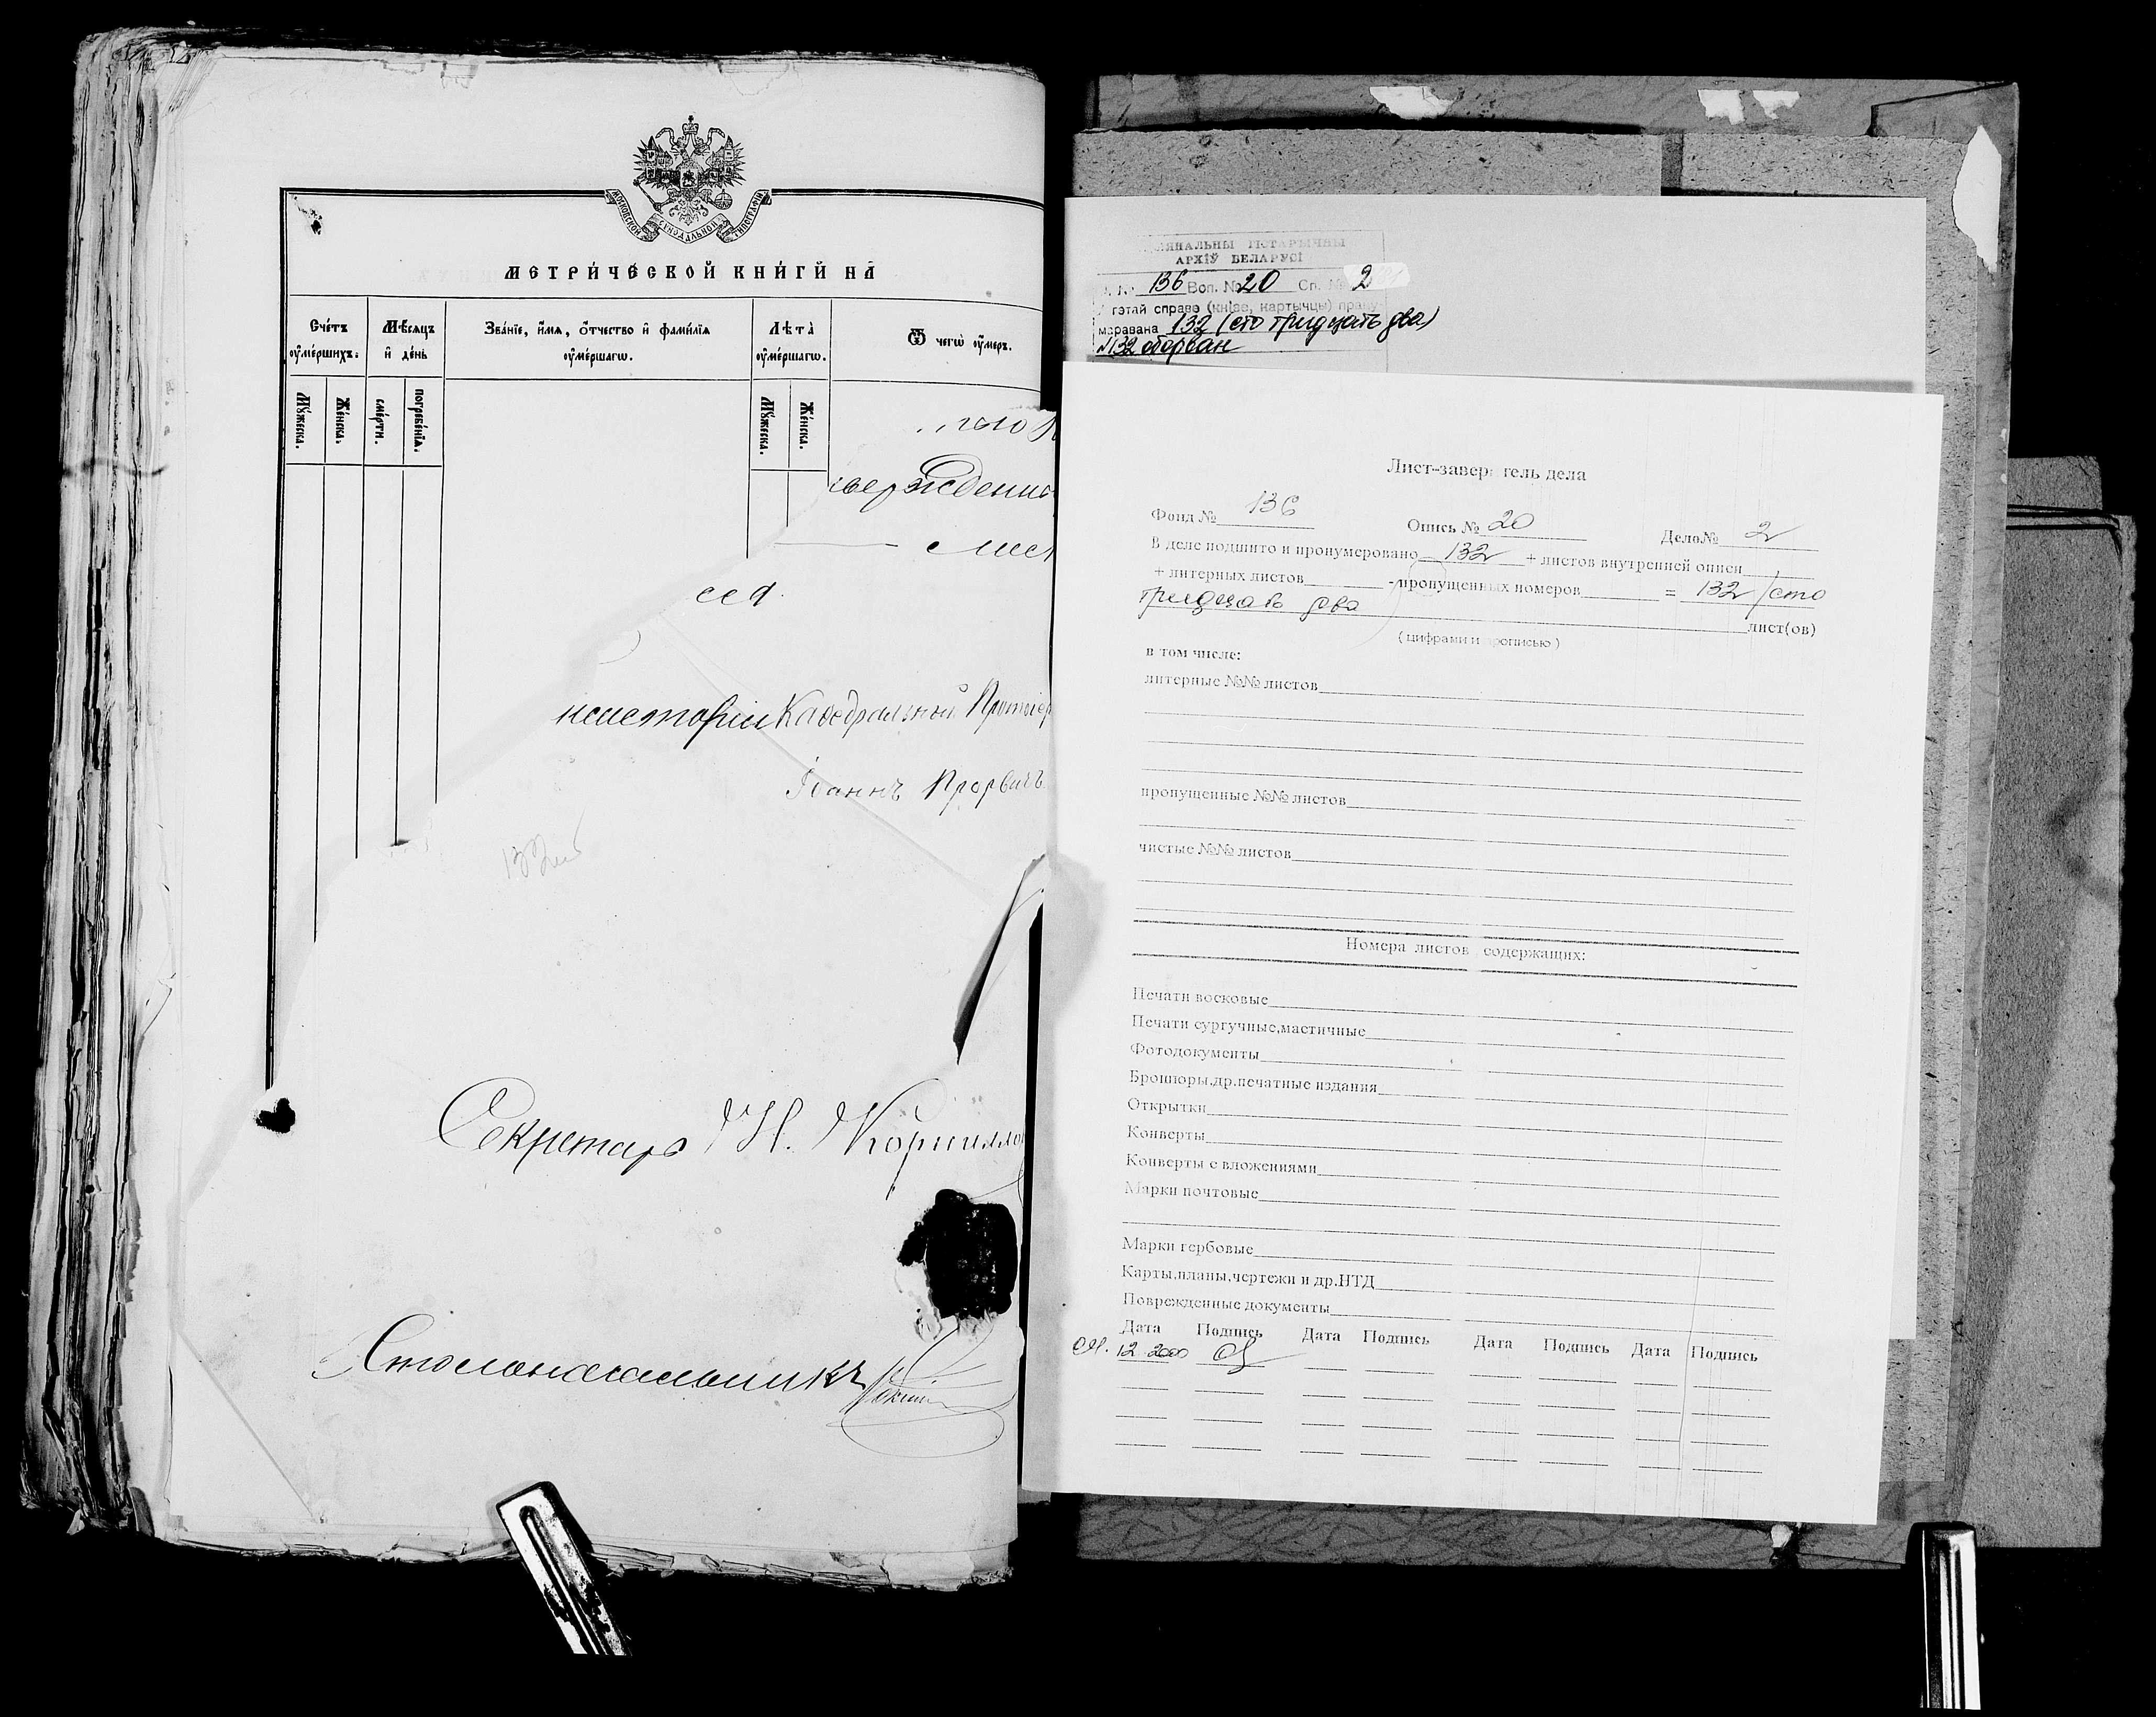 МОСКОВСКОЙ СѴНОДАЛЬНОЙ ТИПОГРАФІИ
МЕТРИ́ЧЕСКОЙ КНИ́ГИ НА̀
Сче́тъ ᲂу҆ме́ршихъ.
Мѣ́сяцъ и҆ де́нь
Зва́нїе, и҆́мя, ѻ҆́тчество и҆ фами́лїя ᲂу҆ме́ршагѡ.
Лѣ́та ᲂу҆ме́ршагѡ.
Ѿ чегѡ̀ ᲂу҆́меръ.
Мꙋ́жеска.
Же́нска.
сме́рти.
погребе́нїя.
Мꙋ́жеска.
Же́нска.
гою
вержденно
с лист
ся
нсисторіи Каѳедральный Протоіер
Іоаннъ Прорвичъ
132
Секретарь Н. Корнилло
Столоначальникъ
АРХІЎ БЕЛАРУСІ
136 Воп. № 20 Сп. № 2
гэтай справе (кнізе, картычцы) прану-
меравана 132 (сто тридцать два)
№132 оборван
Лист-заверитель дела
Фонд № 136 Опись № 20 Дело№ 2
В деле подшито и пронумеровано 132 + листов внутренней описи
+ литерных листов - пропущенных номеров = 132 /сто
тридцать два лист(ов)
(цифрами и прописью)
в том числе:
литерные №№ листов
пропущенные №№ листов
чистые №№ листов
Номера листов содержащих:
Печати восковые
Печати сургучные,мастичные
Фотодокументы
Брошюры,др.печатные издания
Открытки
Конверты
Конверты с вложениями
Марки почтовые
Марки гербовые
Карты,планы,чертежи и др.НТД
Поврежденные документы
Дата Подпись Дата Подпись Дата Подпись Дата Подпись
12 2000